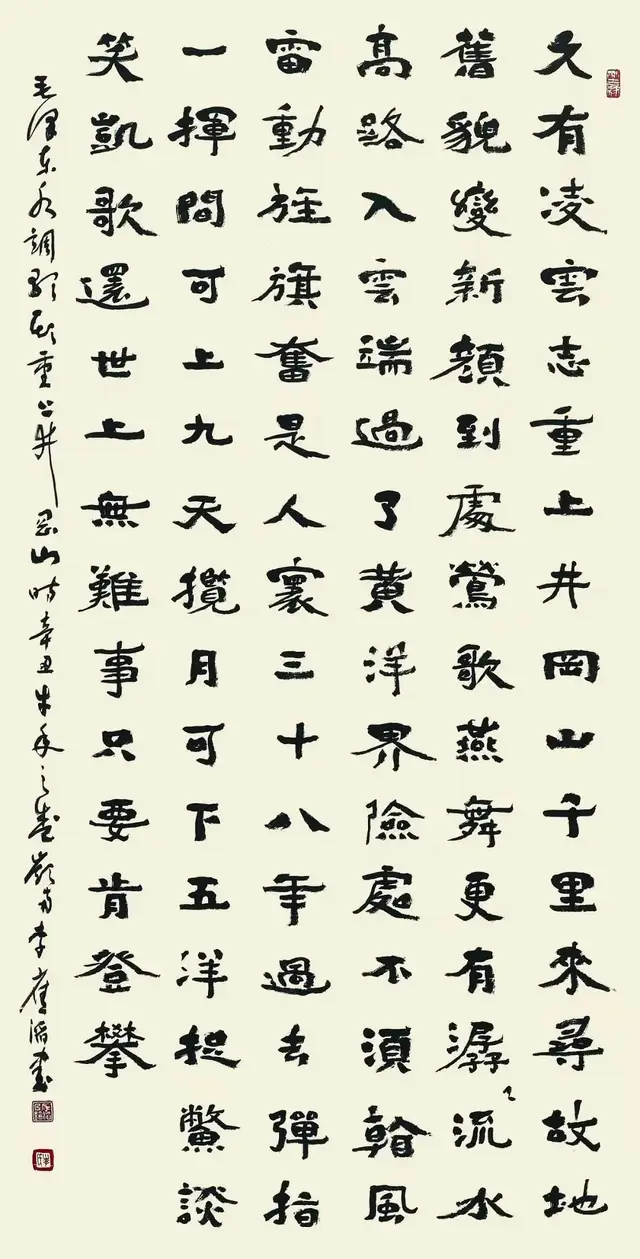 久有凌雲志重上井岡山千里來尋故地
舊貌變新顏到處鶯歌燕舞更有潺〻流水
高路入雲端過了黃洋界險處不須看風
雷動旌旗奮是人寰三十八年過去彈指
一揮間可上九天攬月可下五洋捉鱉談
笑凱歌還世上無難事只要肯登攀
毛澤東水調歌頭重上井岡山時辛丑牛年之春嶺南李滔書